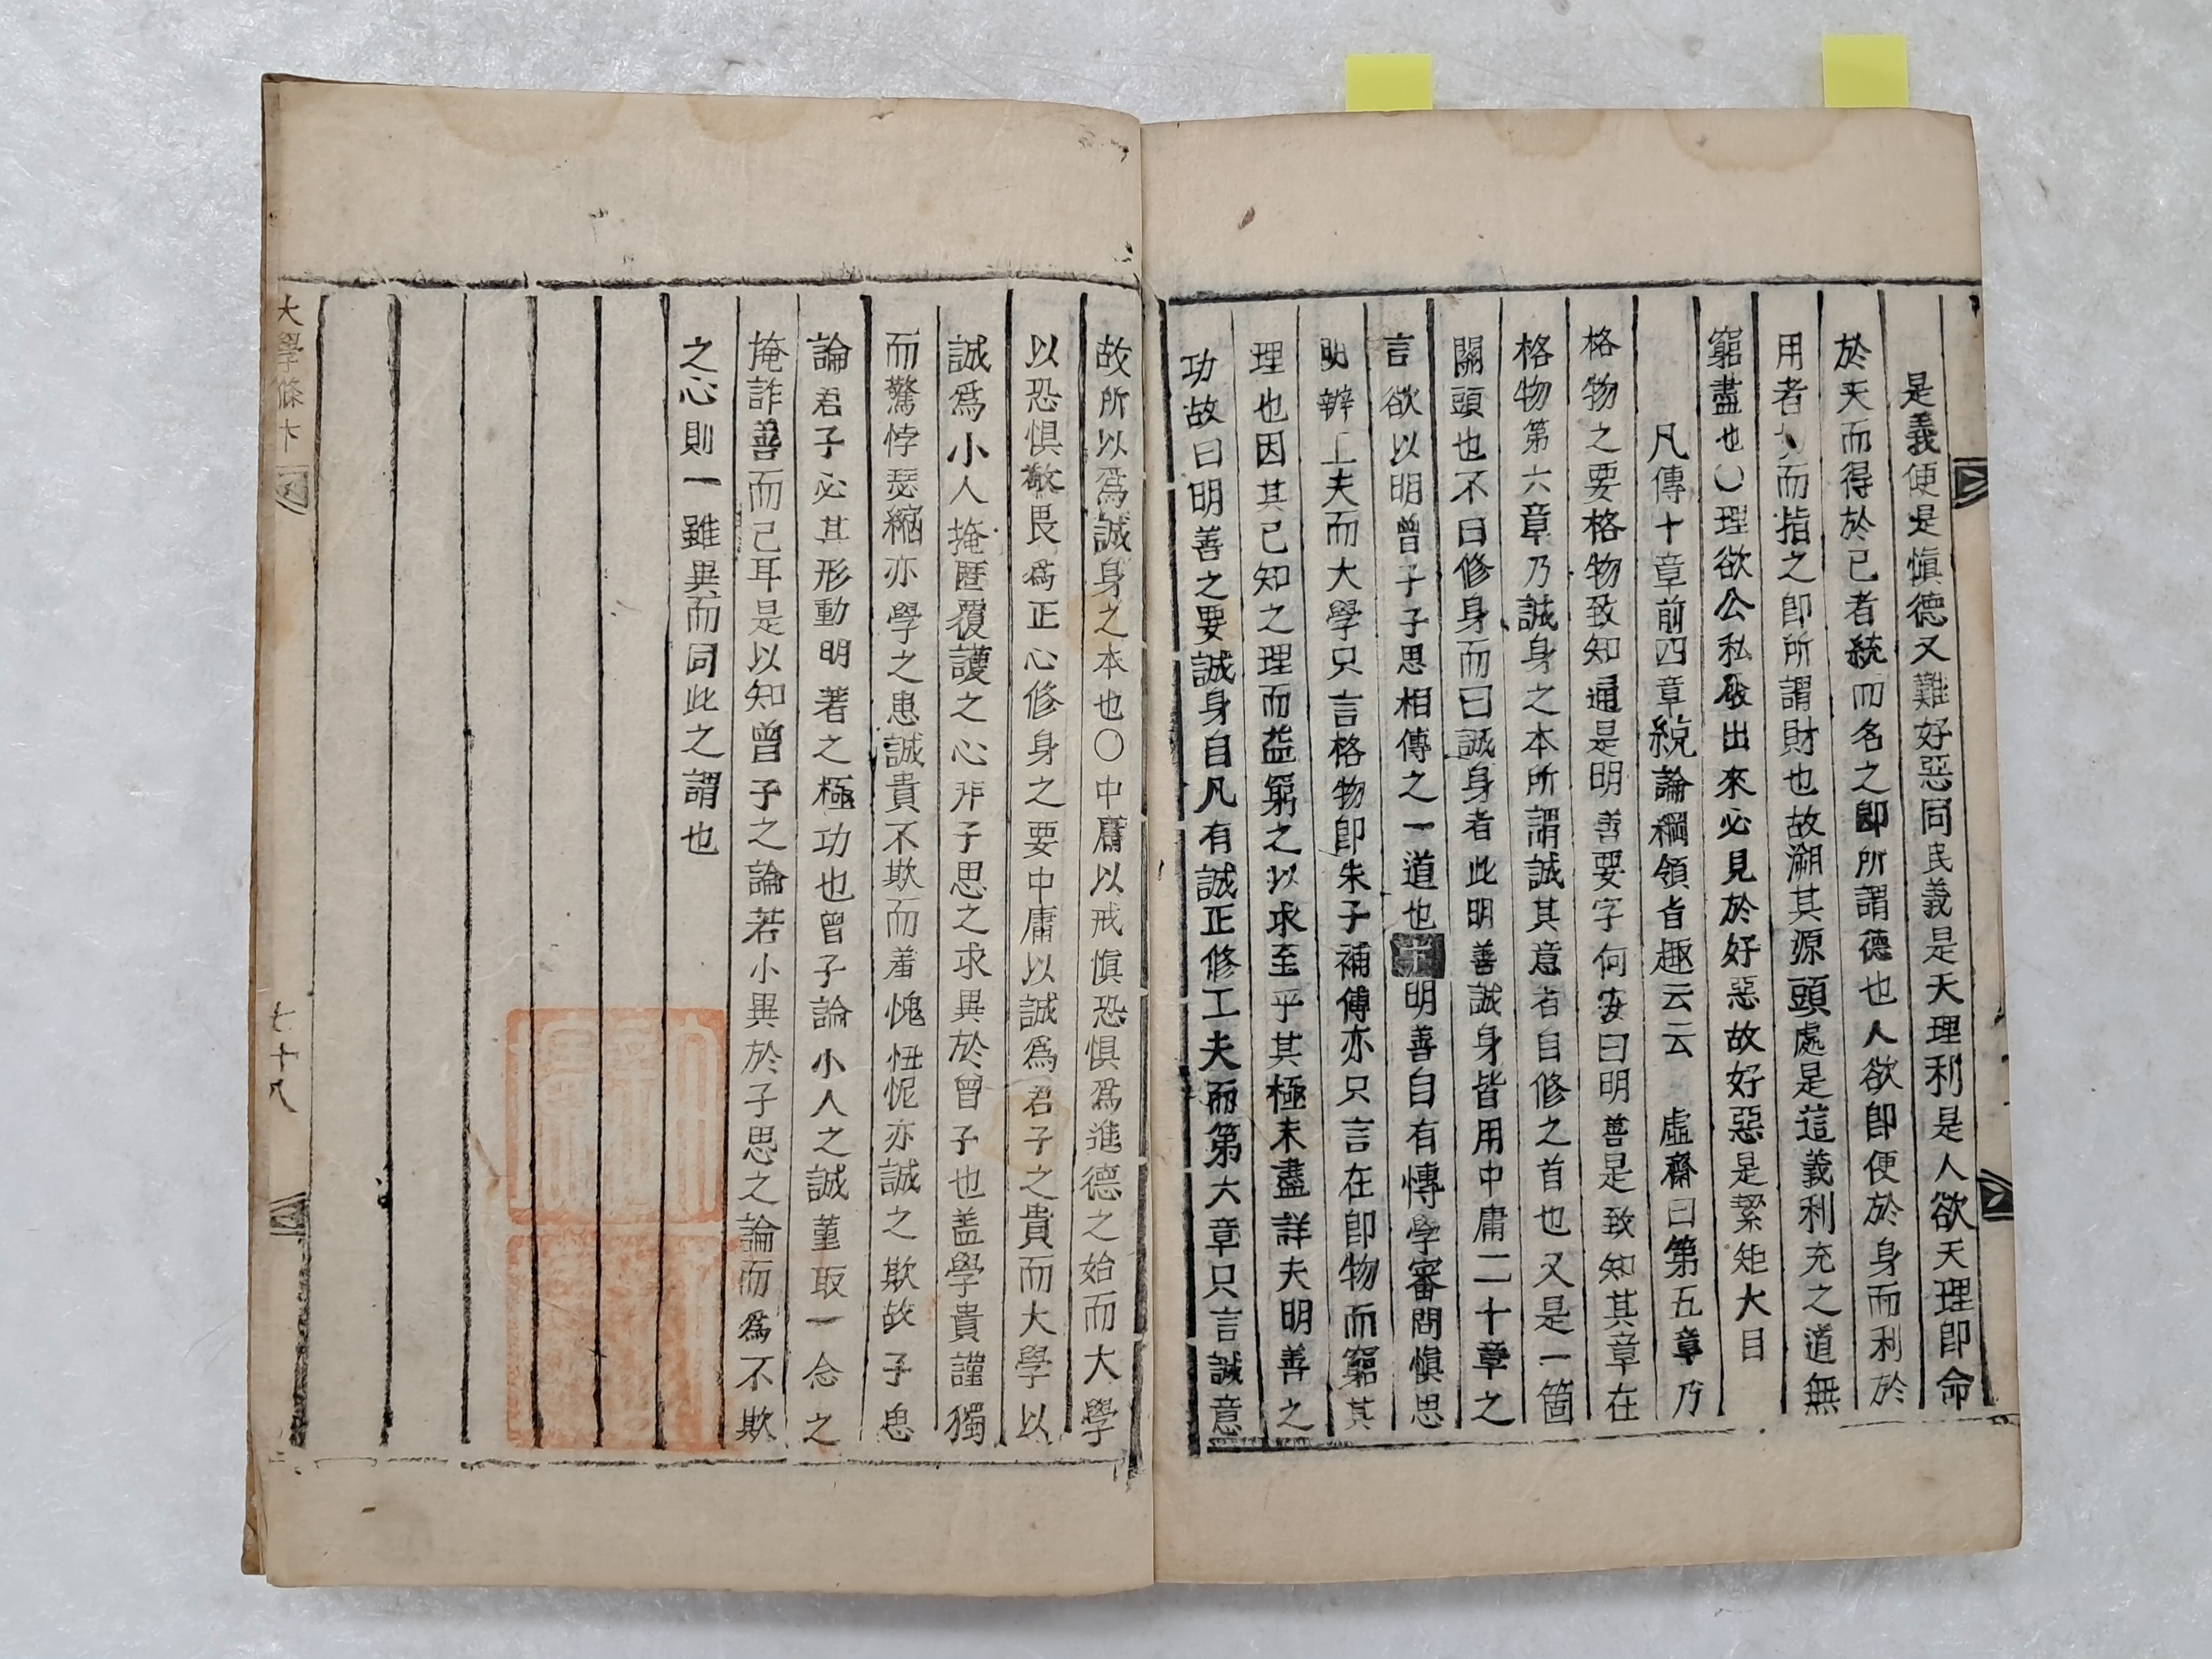 是義便是愼德又難好惡同民義是天理利是人欲天理卽命
於天而得於己者統而名之卽所謂德也人欲卽便於身而利於
用者 而指之卽所謂財也故溯其源頭處是這義利充之道無
窮盡也〇理欲公私 出來必見於好惡故好惡是絜矩大目
凡傳十章前四章統論綱領旨趣云云 虛齋曰第五章乃
格物之要格物致知通是明善要字何安曰明善是致知其章在
格物第六章乃誠身之本所謂誠其意者自修之首也又是一箇
關頭也不曰修身而曰誠身者此明善誠身皆用中庸二十章之
言欲以明曾子子思相傳之一道也 明善自有愽學審問愼思
明辨工夫而大學只言格物卽朱子補傳亦只言在卽物而窮其
理也因其已知之理而益窮之以求至乎其極未盡詳夫明善之
功故曰明善之要誠身自凡有誠正修工夫而第六章只言誠意
故所以爲誠身之本也〇中庸以戒愼恐惧爲進德之始而大學
以恐惧敬畏爲正心修身之要中庸以誠爲君子之貴而大學以
誠爲小人掩匿覆護之心非子思之求異於曾子也盖學貴謹獨
而驚悖瑟縮亦學之患誠貴不欺而羞愧忸怩亦誠之欺故子思
論君子必其形動明著之極功也曾子論小人之誠菫取一念之
掩詐善而已耳是以知曾子之論若小異於子思之論而爲不欺
之心則一雖異而同此之謂也
大學條卞
七十八